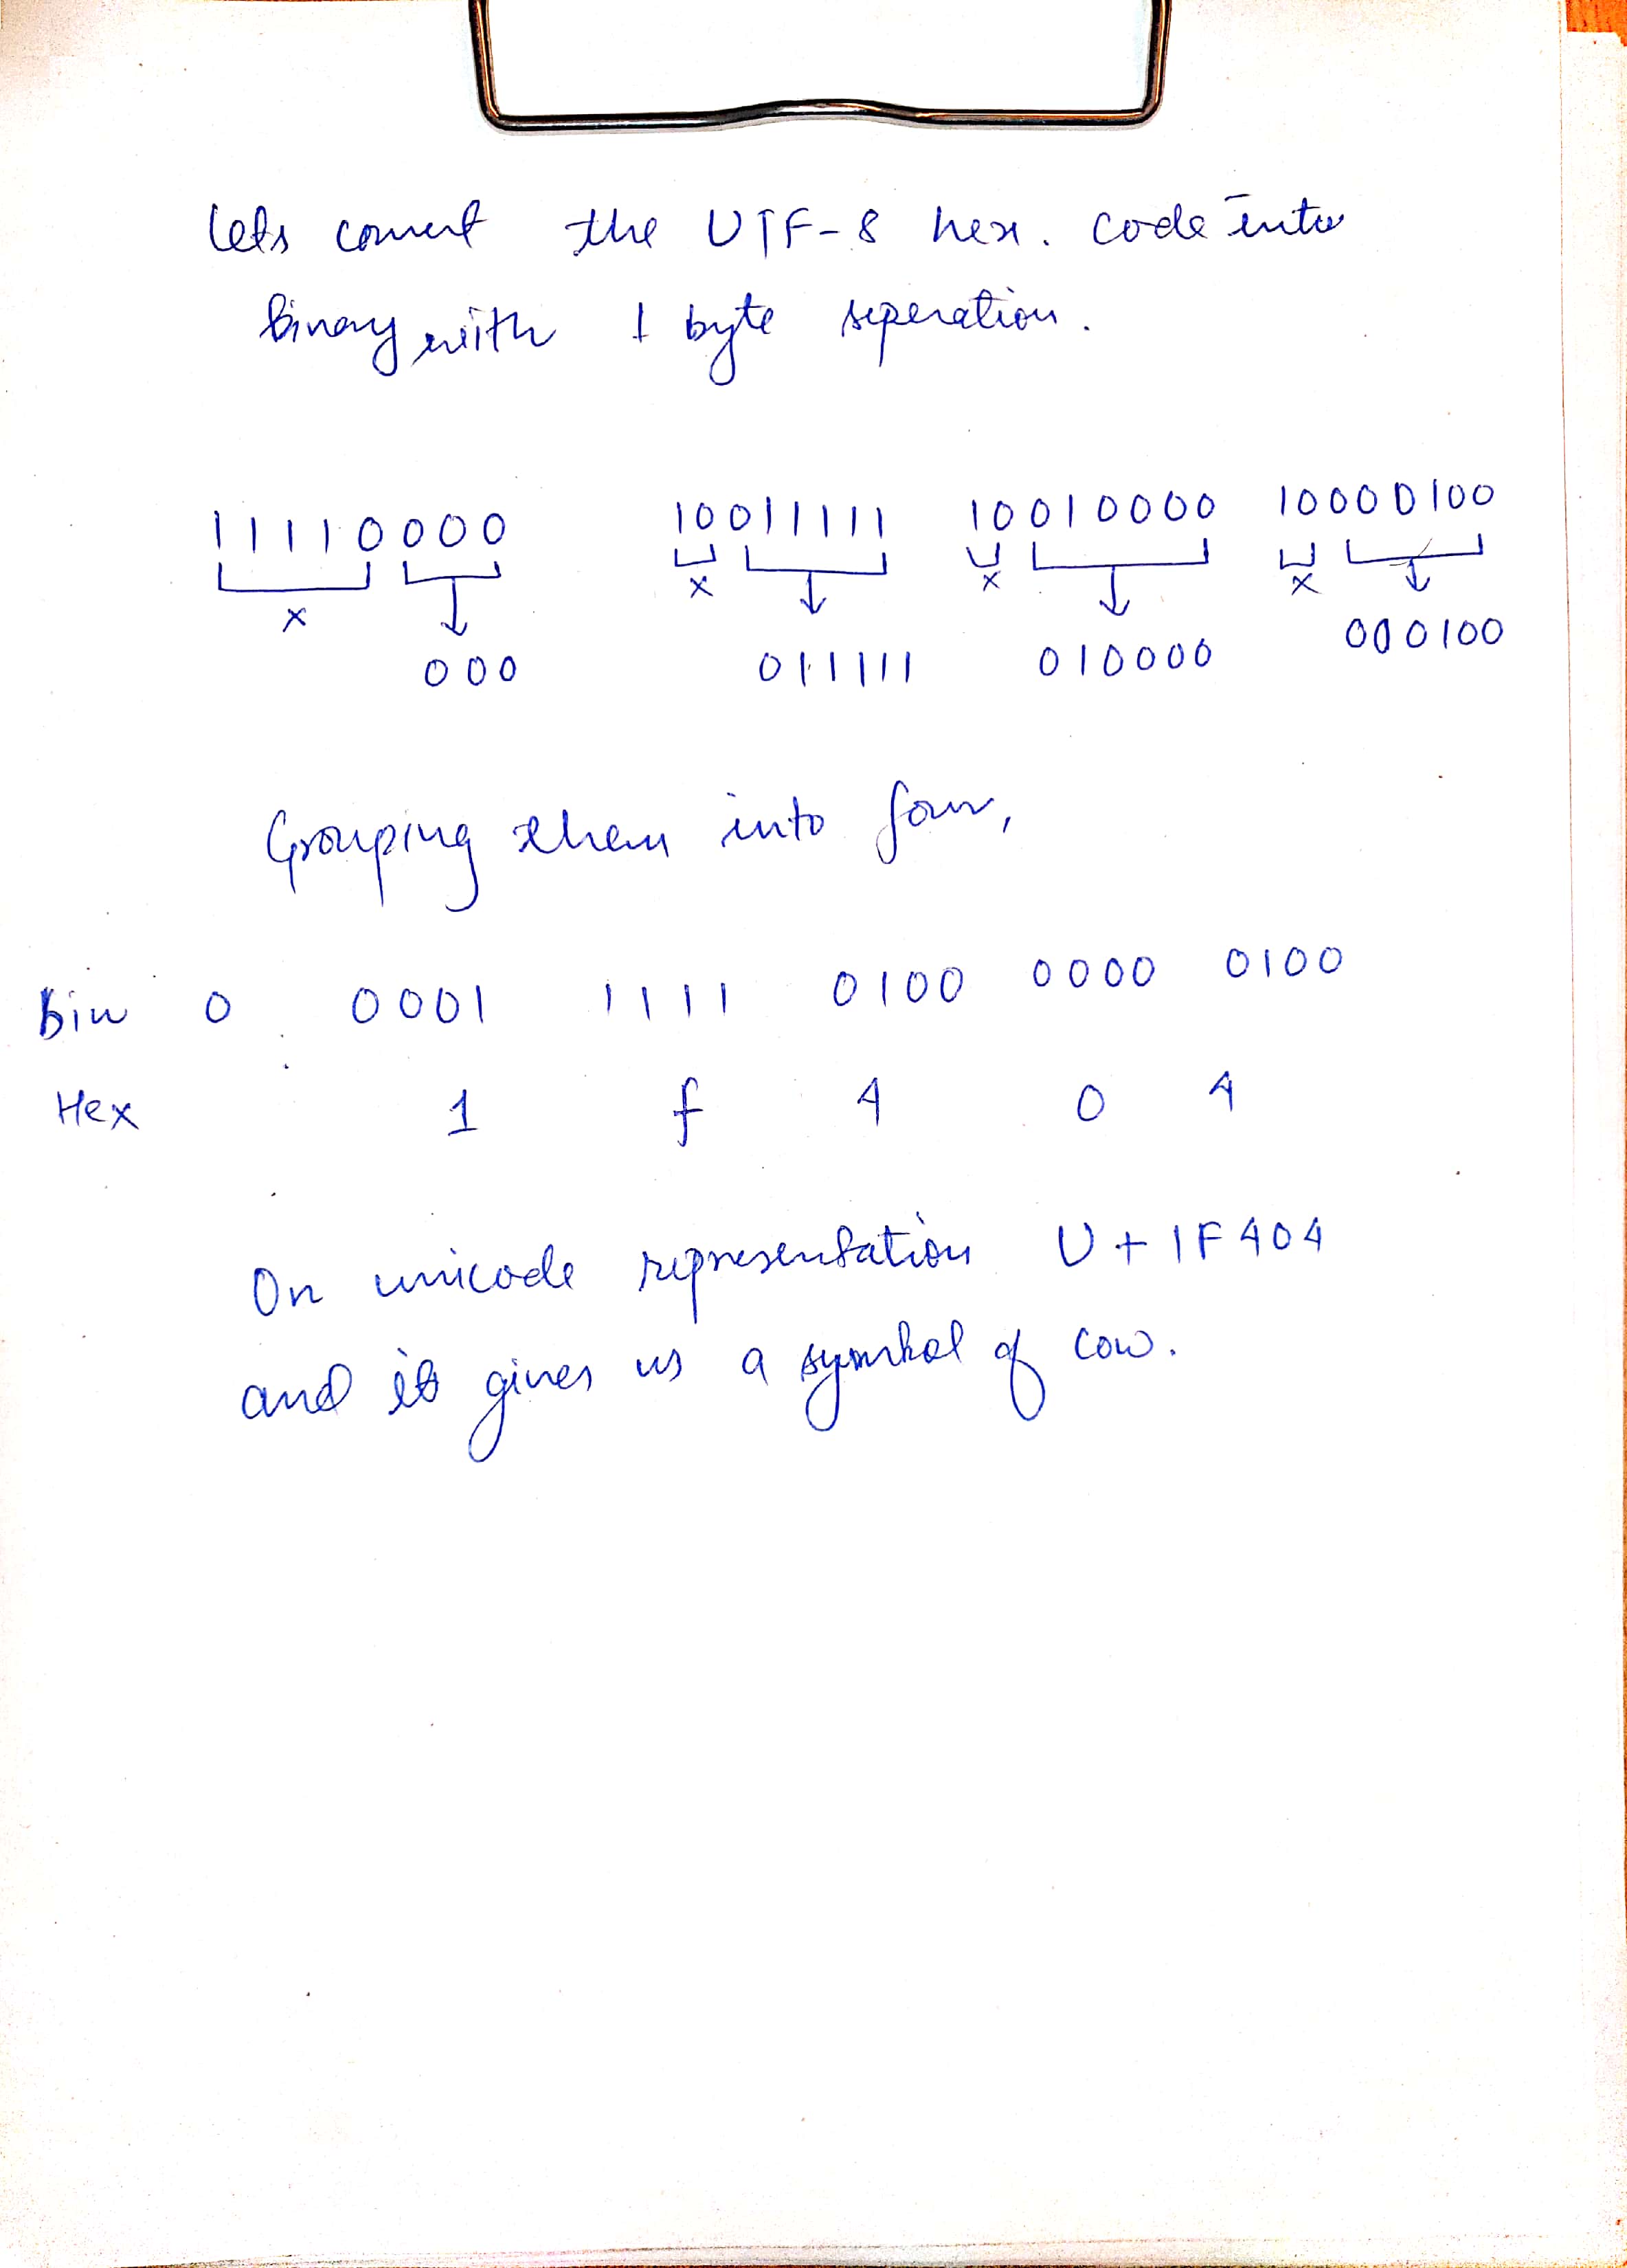 Lets convert the UTF-8 hex. code into
binary with 1 byte seperation.
11110000 10011111 10010000 10000100
x x x x
000 011111 010000 000100
Grouping them into four,
Bin 0 0001 1111 0100 0000 0100
Hex 1 f 4 0 4
On unicode representation U+1F404
and it gives us a symbol of cow.